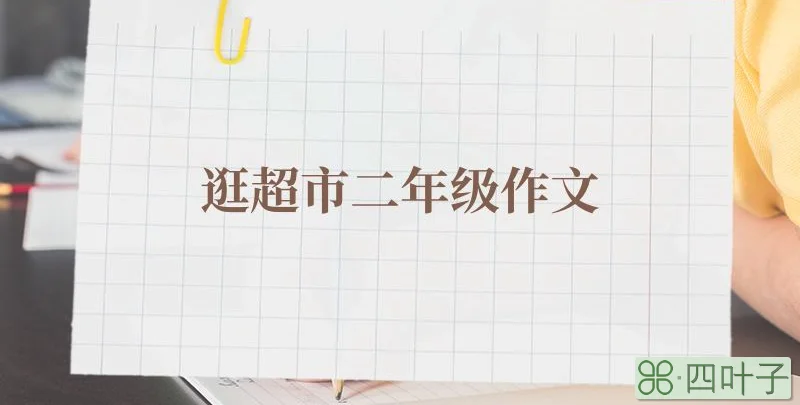 逛超市二年级作文
四叶子